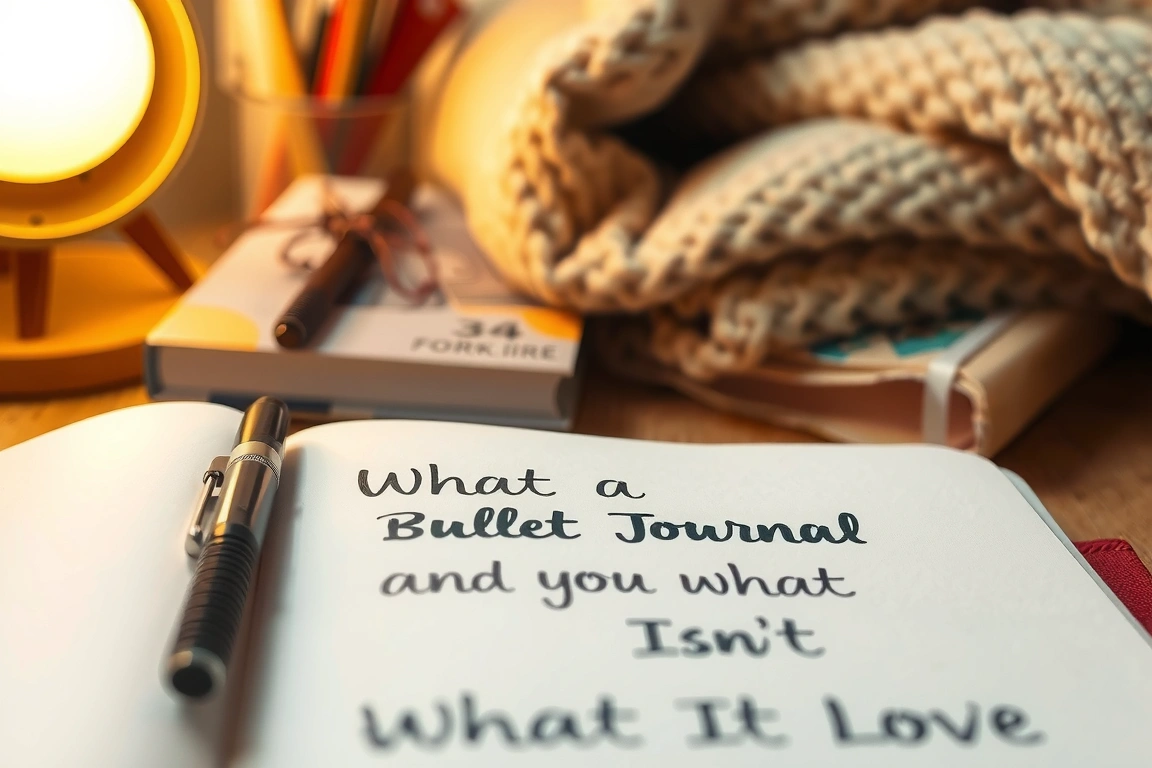 34
FORK IIRE
What a
Bullet Journal
and you what
Isn't
What It Love